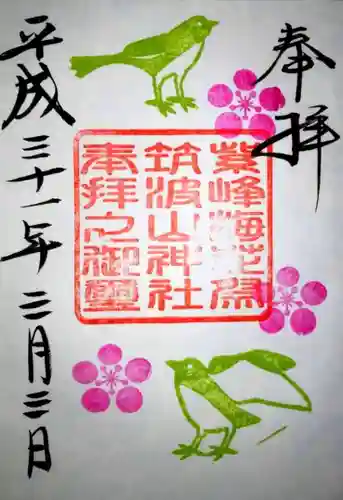 奉拝
紫峰梅花祭
筑波山神社
奉拝之御璽
平成三十一年二月三日